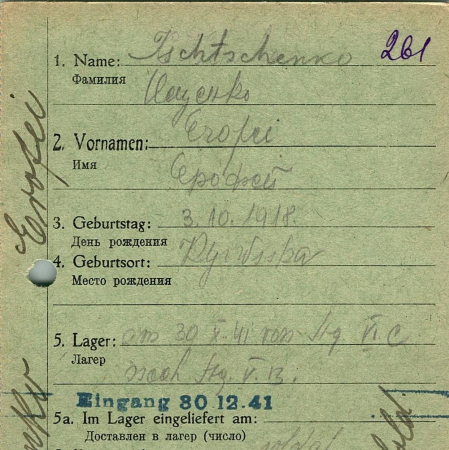 261
1. Name: Ischtschenko
Фамилия Ищенко
2. Vornamen: Erofei
Имя Ерофей
3. Geburtstag: 3.10.1918.
День рождения
4. Geburtsort:
Место рождения
5. Lager: am 30 X. 41 von Stg. VI C
Лагер nach Stg. V. B.
Eingang 30 12.41
5a. Im Lager eingeliefert am:
Доставлен в лагер (число)
Erofei